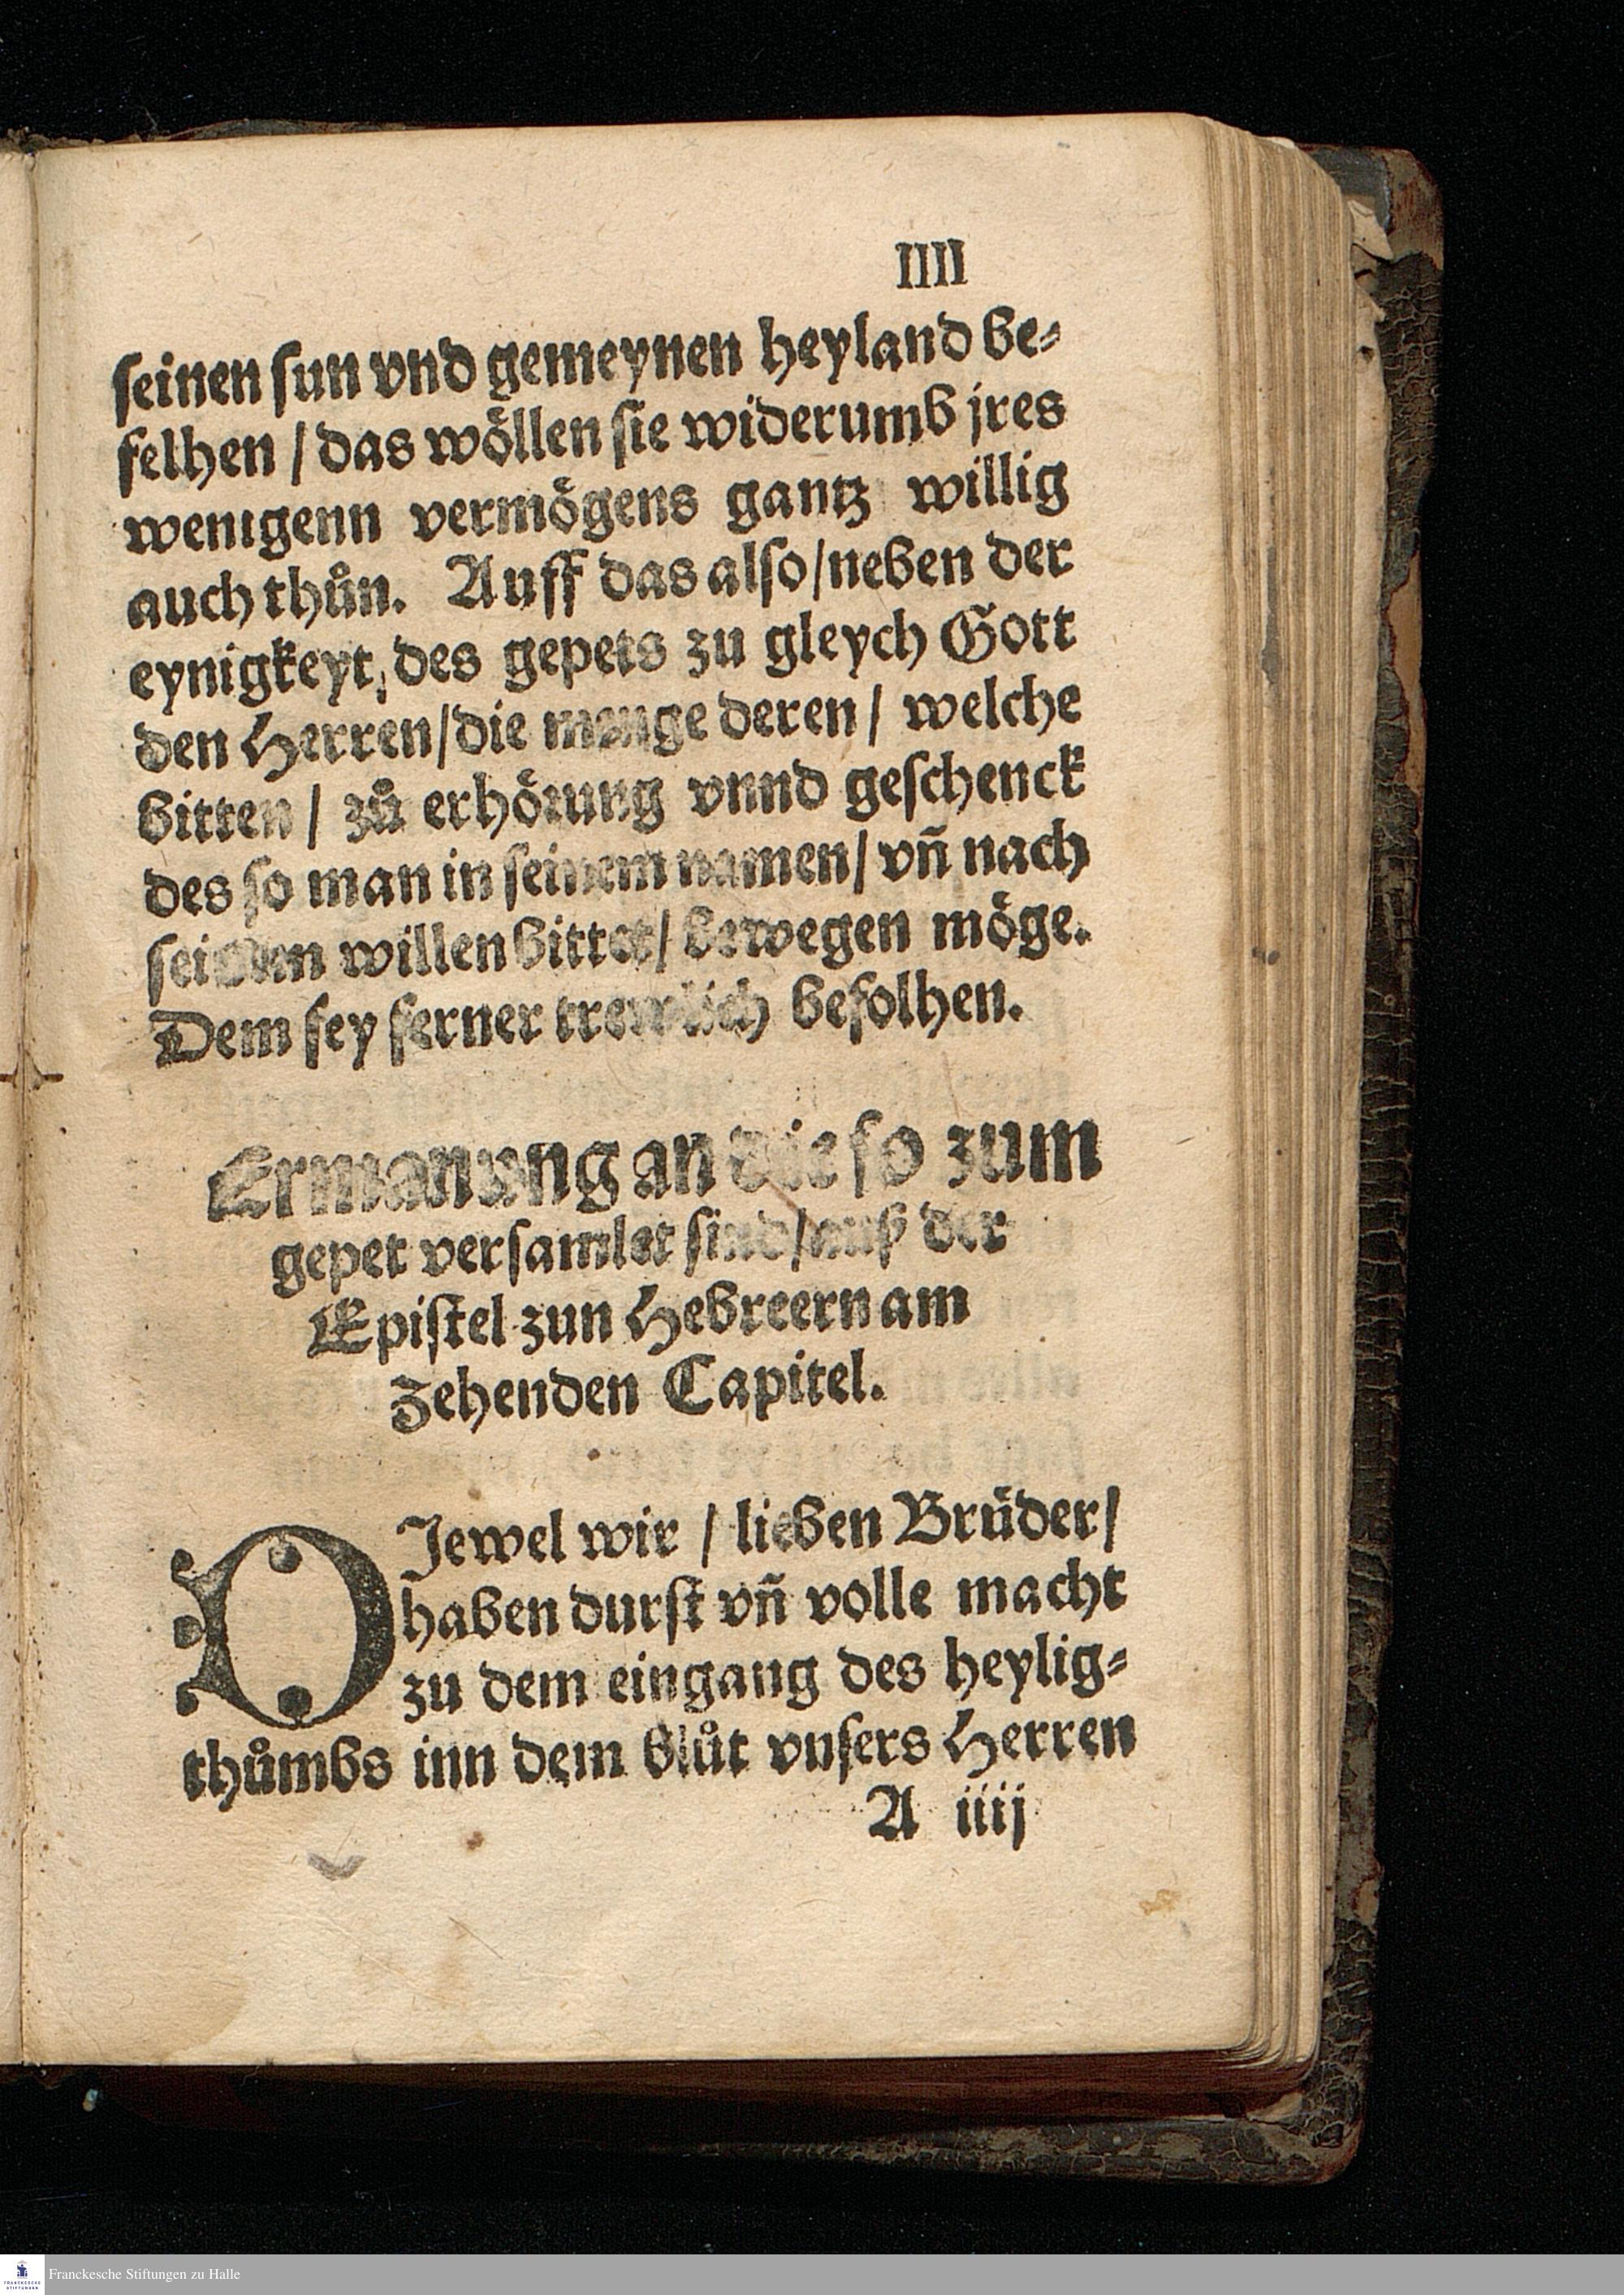 IIII
seinen sun vnd gemeynen heyland be⸗
felhen / das wöllen sie widerumb jres
wenigenn vermögens gantz willig
auch thůn. Auff das also / neben der
eynigkeyt, des gepets zu gleych Gott
den Herren / die menge deren / welche
bitten / zů erhörung vnnd geschenck
des so man in seinem namen / vñ nach
seinem willen bittet / bewegen möge.
Dem sey ferner trewlich befolhen.
Ermanung an die so zum
gepet versamlet sind / auß der
Epistel zun Hebreern am
Zehenden Capitel.
DIewel wir / lieben Brüder /
haben durst vñ volle macht
zu dem eingang des heylig⸗
thůmbs inn dem blůt vnsers Herren
A iiij
Franckesche Stiftungen zu Halle